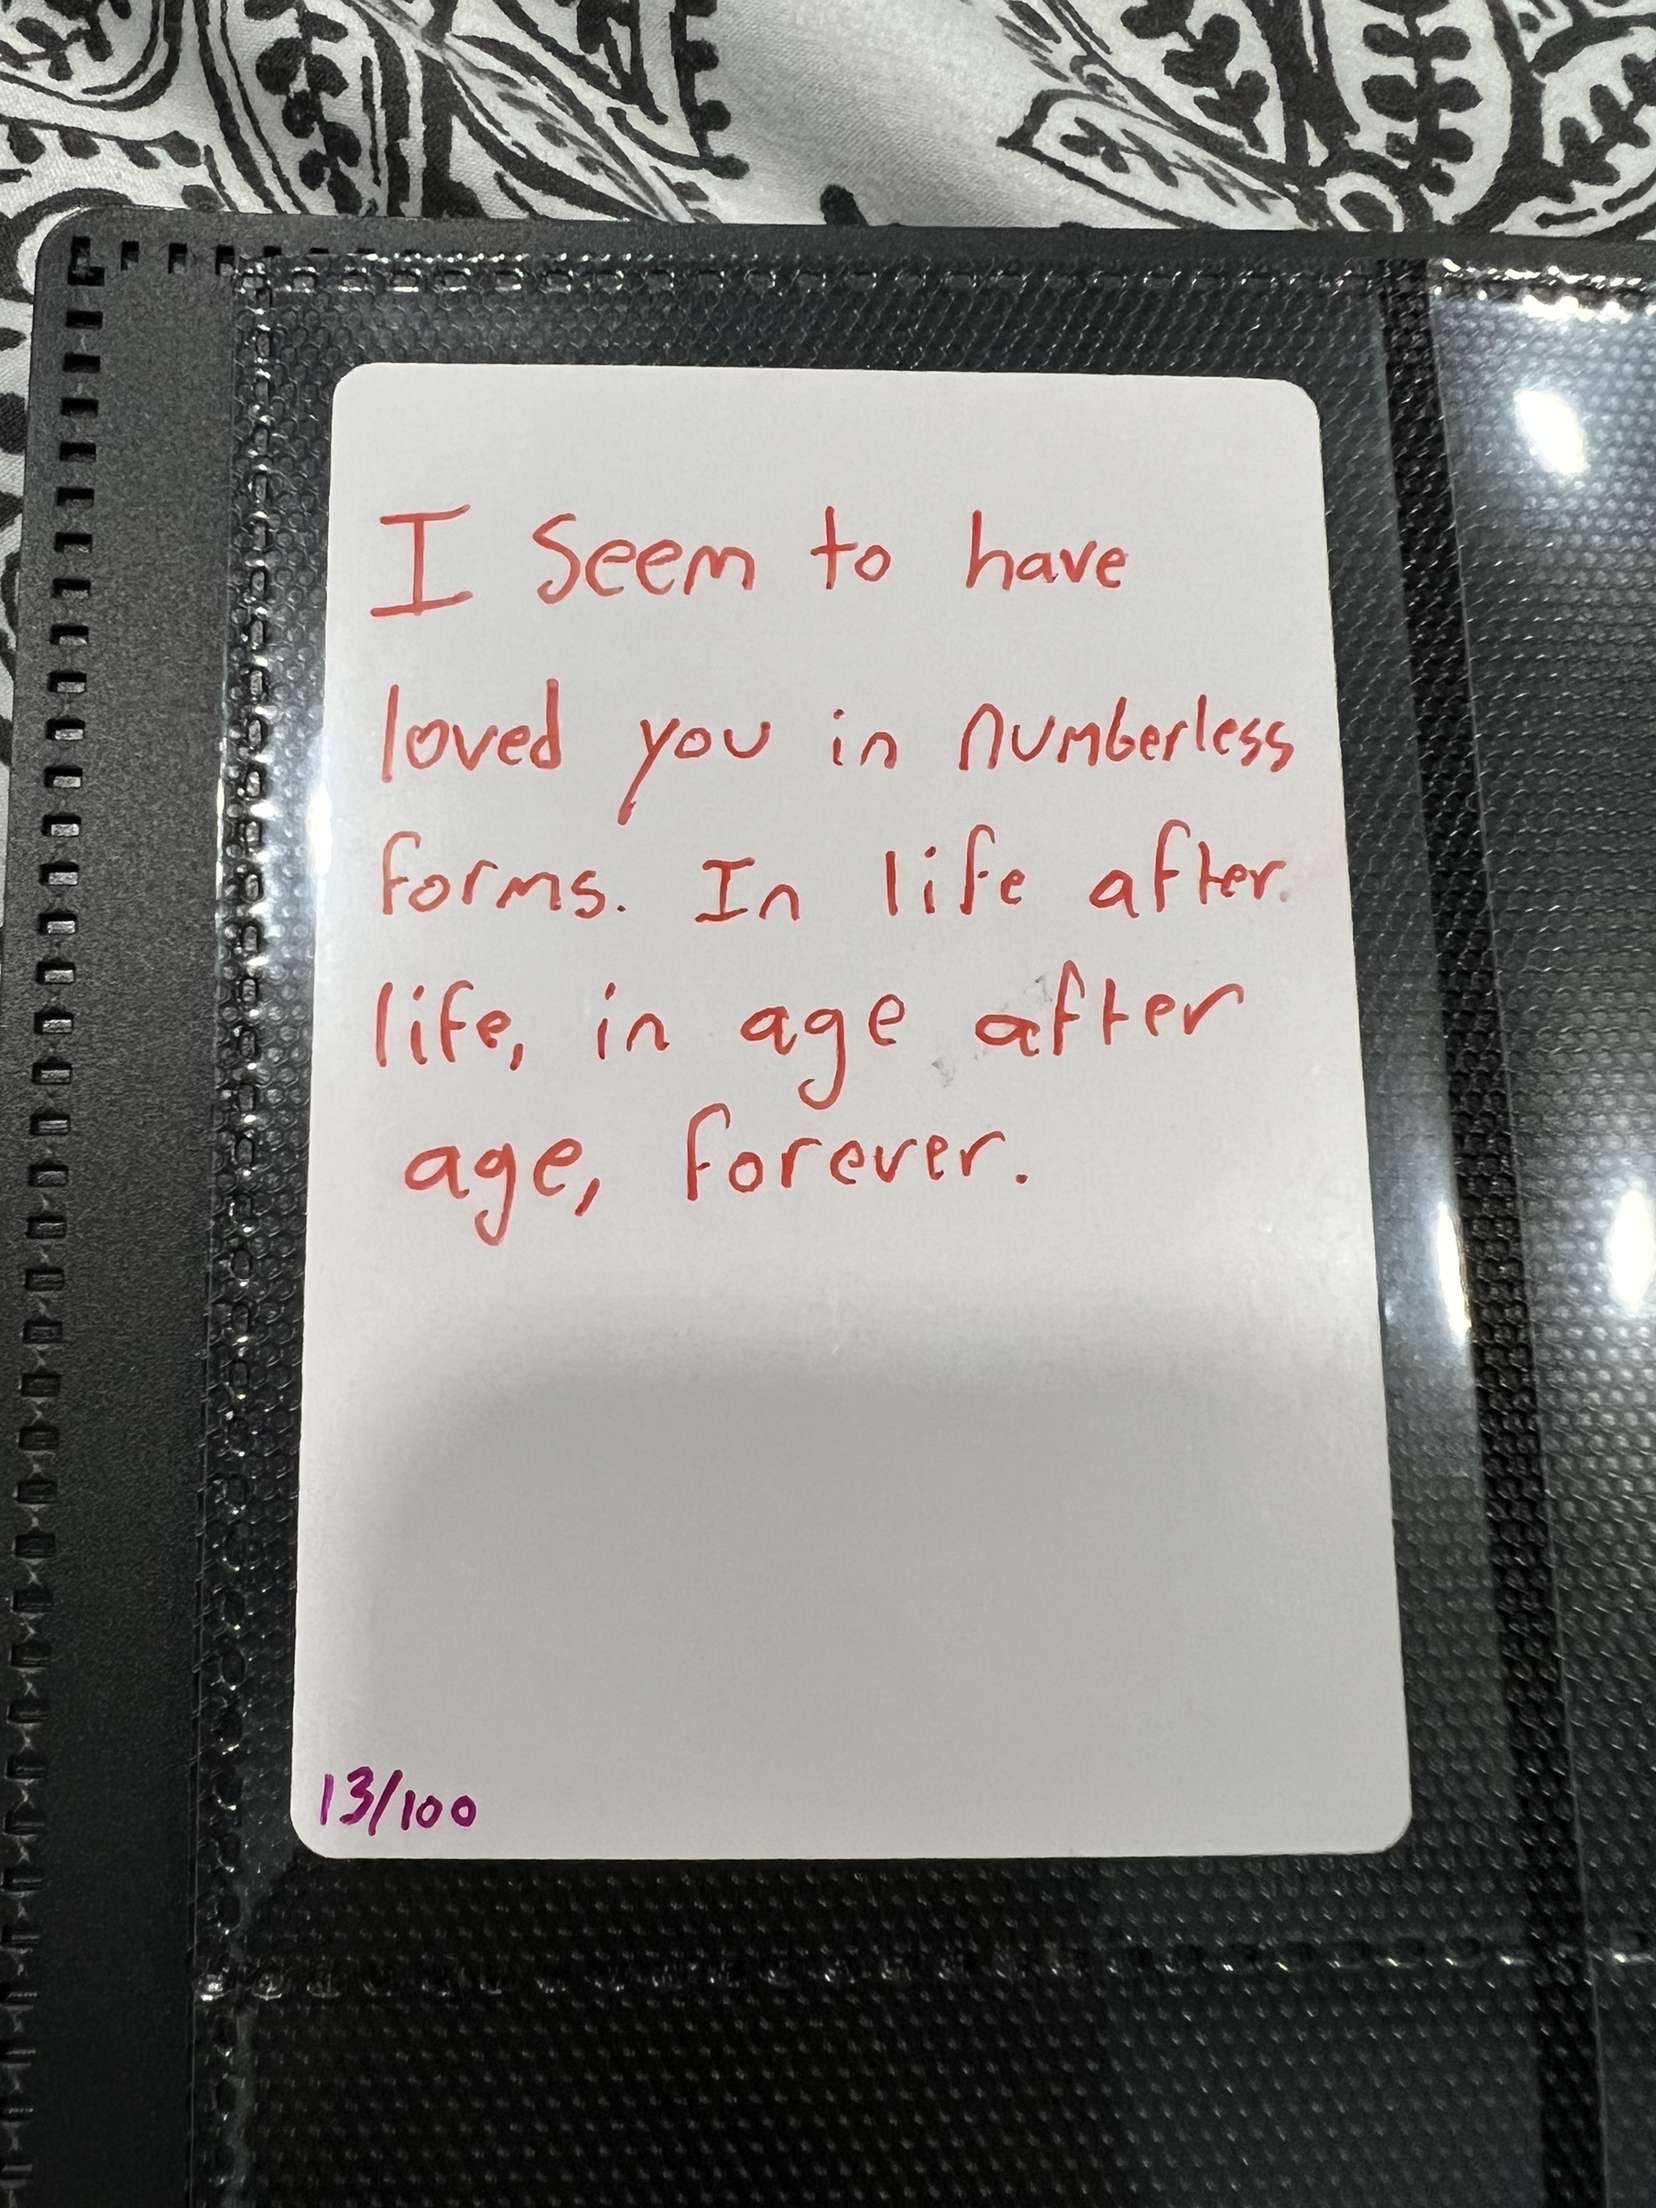 I seem to have
loved you in numberless
forms. In life after
life, in age after
age, forever.
13/100